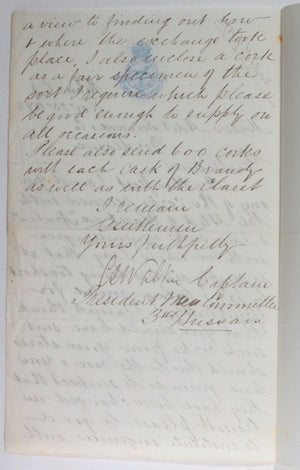 a view to finding out how
& where the exchange took
place, I also enclose a cork
as a fair specimen of the
sort I require which please
be good enough to supply on
all occasions.
Please also send 600 corks
with each cask of Brandy
as well as with the Claret
I remain
Gentlemen
Yours faithfully
Walker Captain
President Mess Committee
Hussars